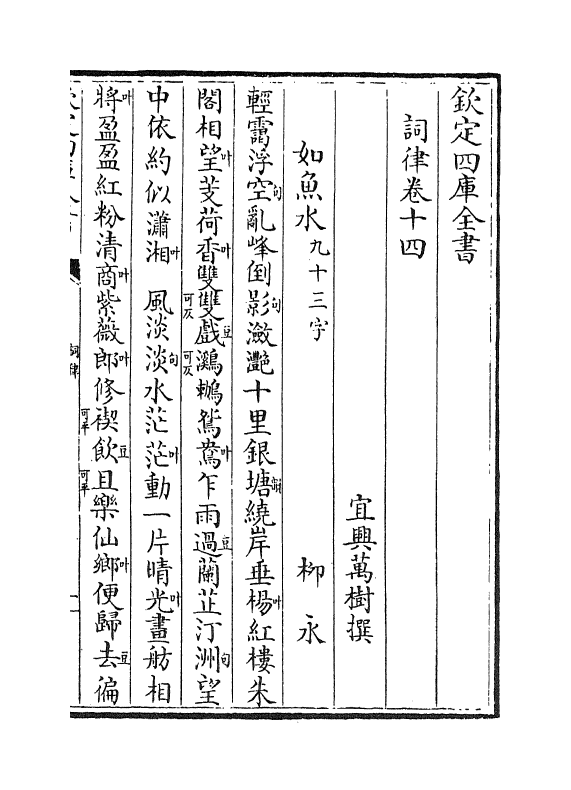 欽定四庫全書
詞律卷十四
宜興萬樹撰
如魚水九十三字 柳永
輕靄浮空句亂峰倒影句瀲灧十里銀塘韻繞岸垂楊叶紅樓朱
閣相望叶芰荷香叶雙可仄雙戲豆鸂可仄鶒鴛鴦叶乍雨過豆蘭芷汀洲句望
中依約似瀟湘叶 風淡淡句水茫茫叶動一片晴光叶畫舫相
將叶盈盈紅粉清商叶紫薇郎叶修禊可平飲豆且可平樂仙鄉叶便歸去豆徧
詞律